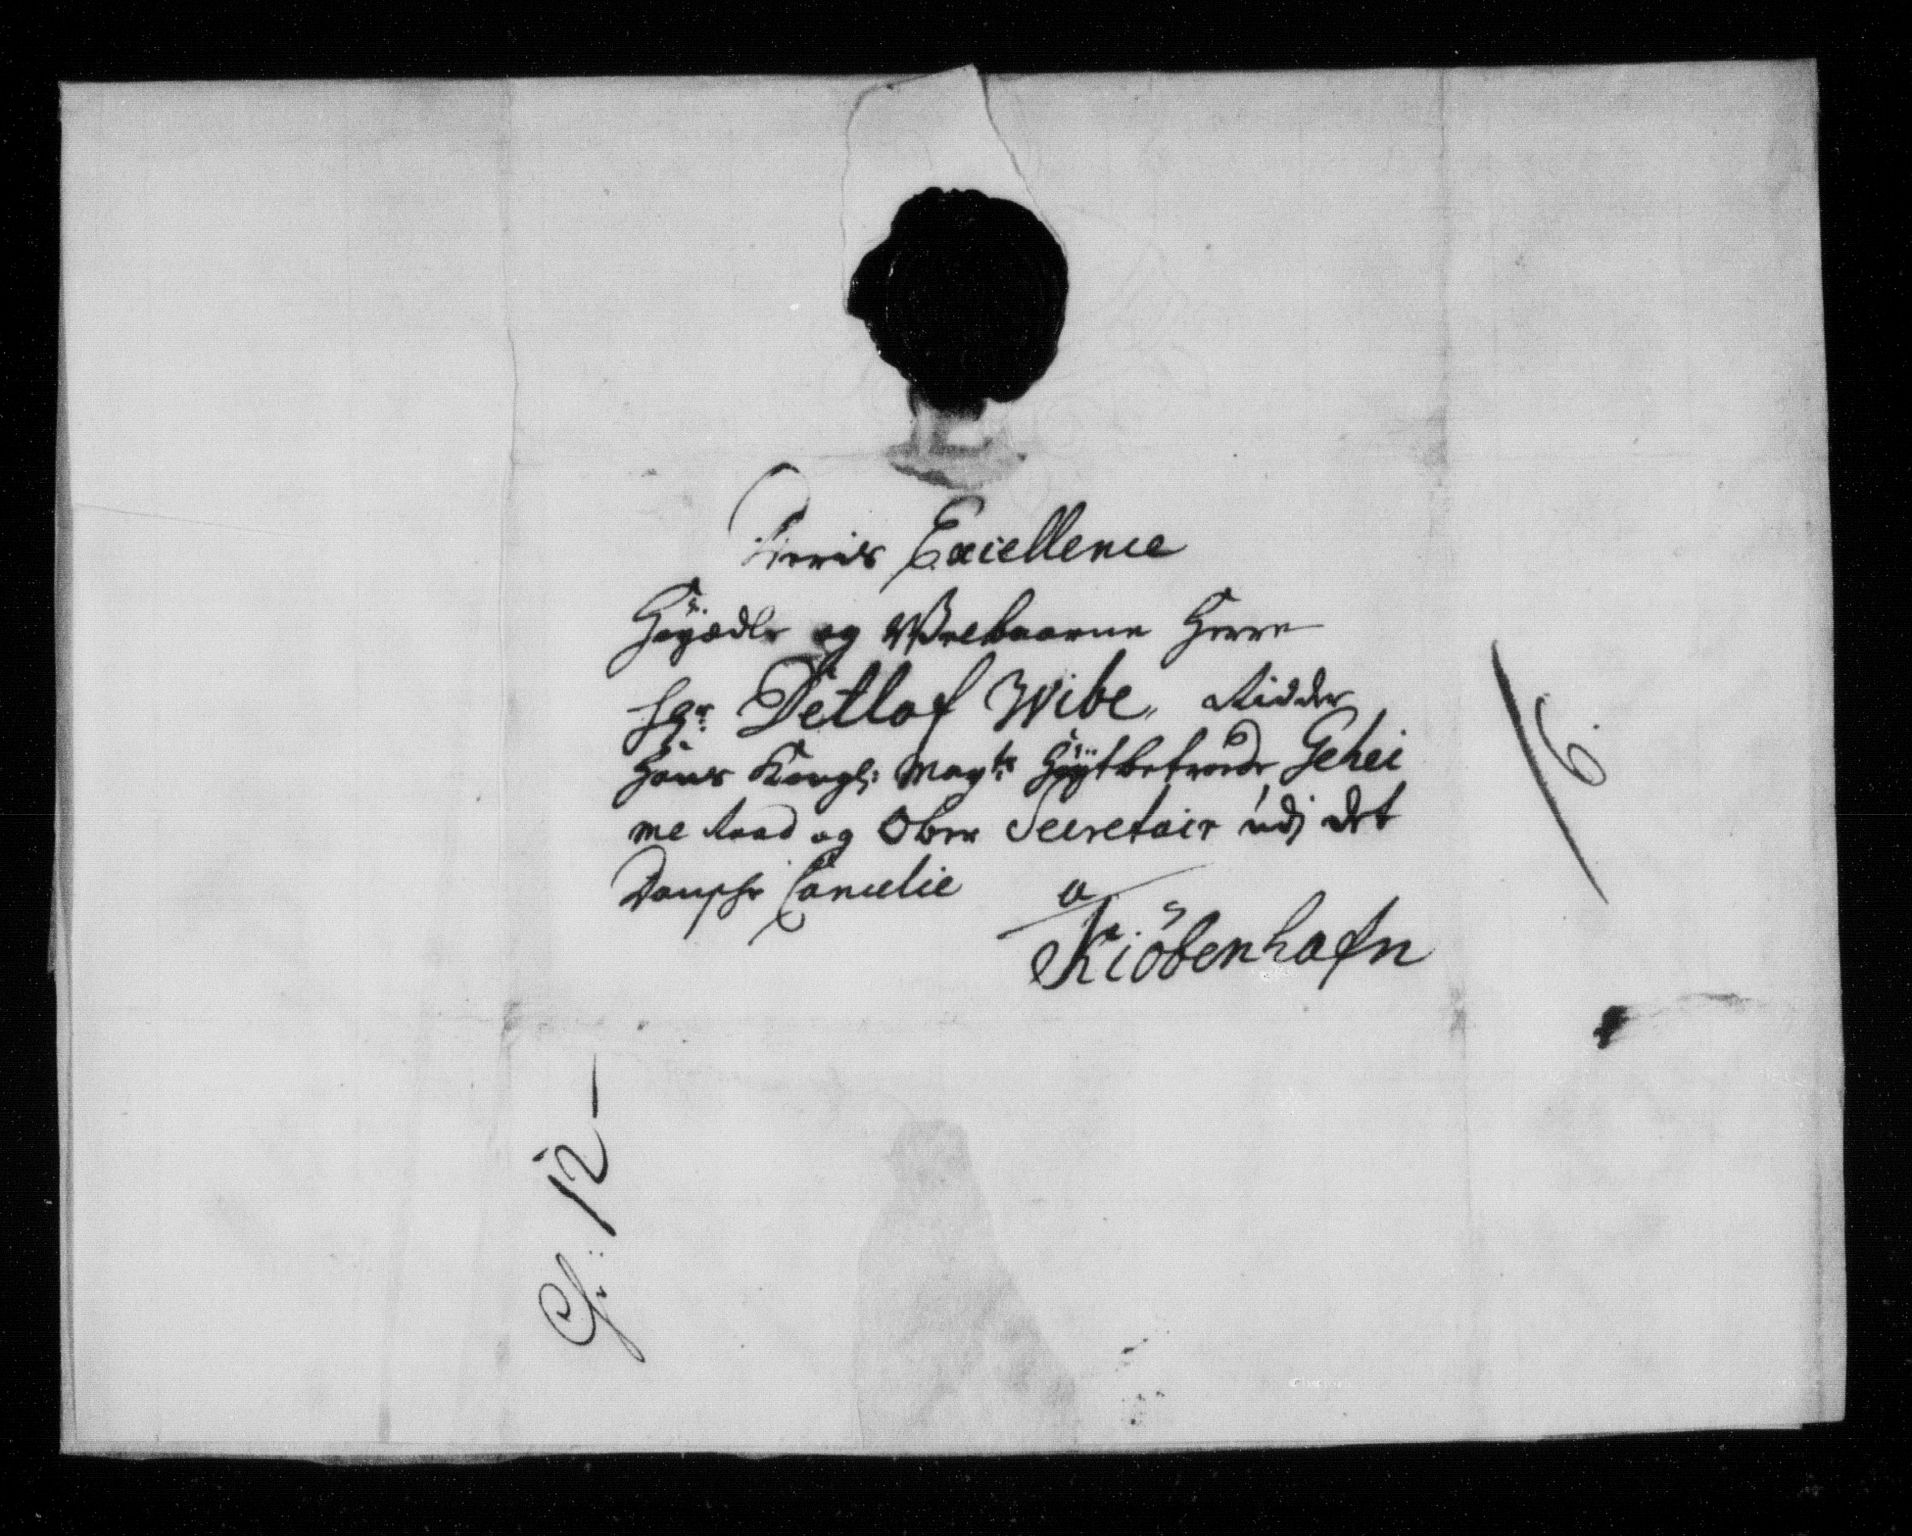 Excellence
Høyædle og Velbaarne Herre
Hr: Detlof Wibe, Ridder
Hans Kongl: May:ts Høytbetroede Gehei
me Raad og Ober Secretair udj det
Danske Cancelie a
Kiöbenhafn
6.
12